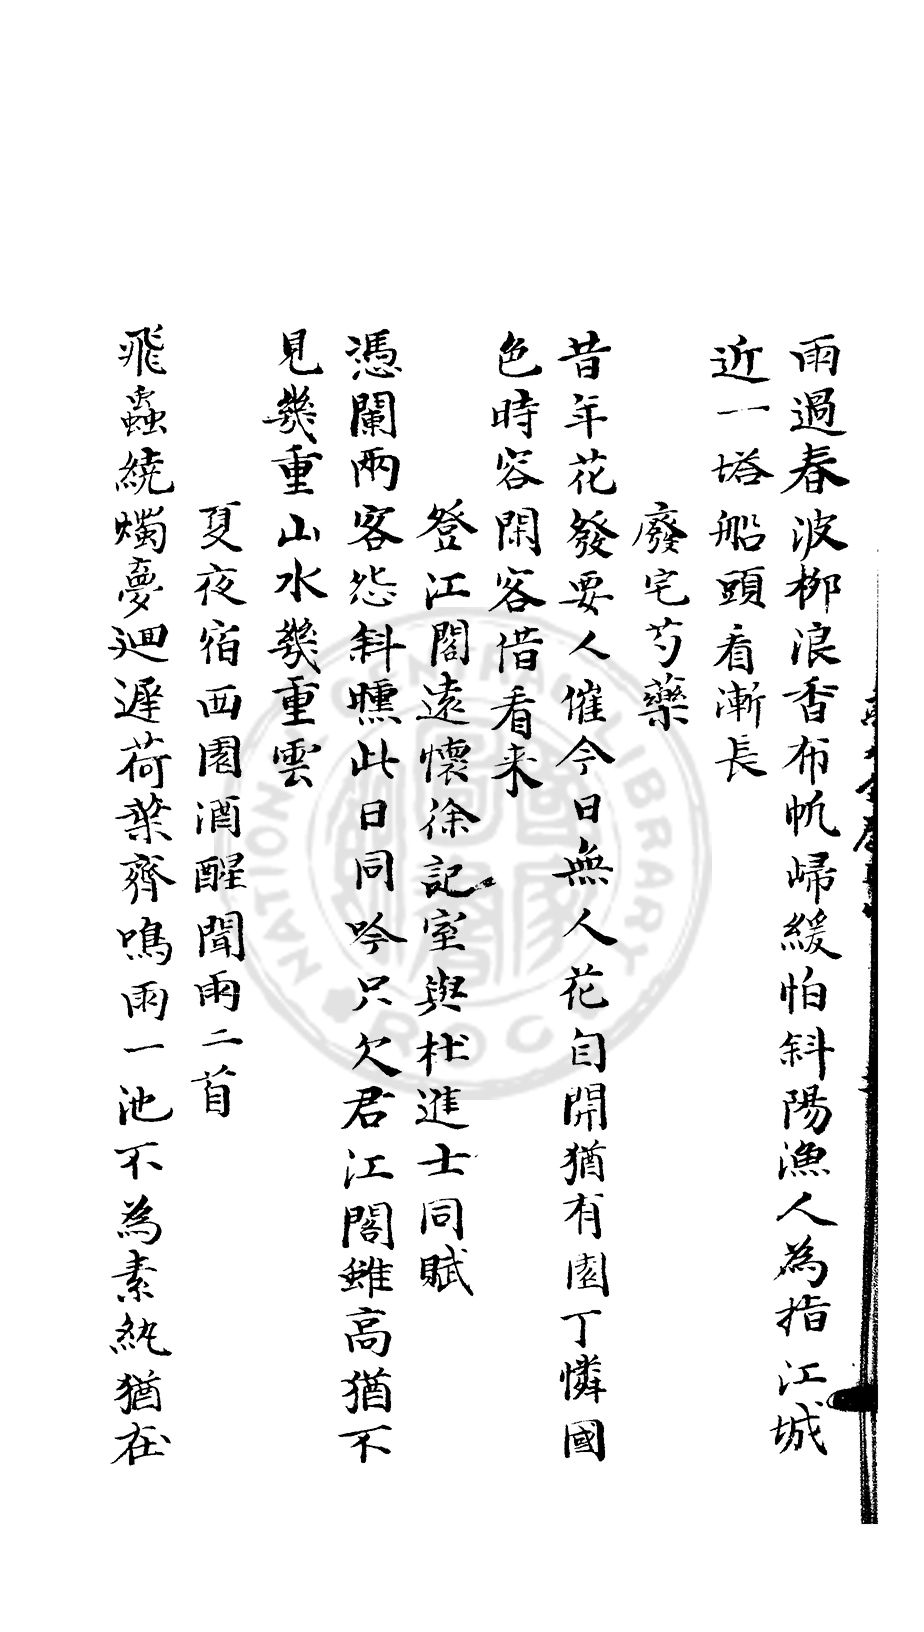 雨過春波柳浪香布帆歸緩怕斜陽漁人為指江城
近一塔船頭看漸長
廢宅芍藥
昔年花發要人催今日無人花自開猶有園丁憐國
色時容閑客借看来
登江閣遠懷徐記室與杜進士同賦
憑闌兩客怨斜曛此日同吟只欠君江閣雖高猶不
見幾重山水幾重雲
夏夜宿西園酒醒聞雨二首
飛蟲繞燭夢廻遲荷葉齊鳴雨一池不為素紈猶在
NATIONAL CENTRAL LIBRARY
R.O.C.
國家圖書館